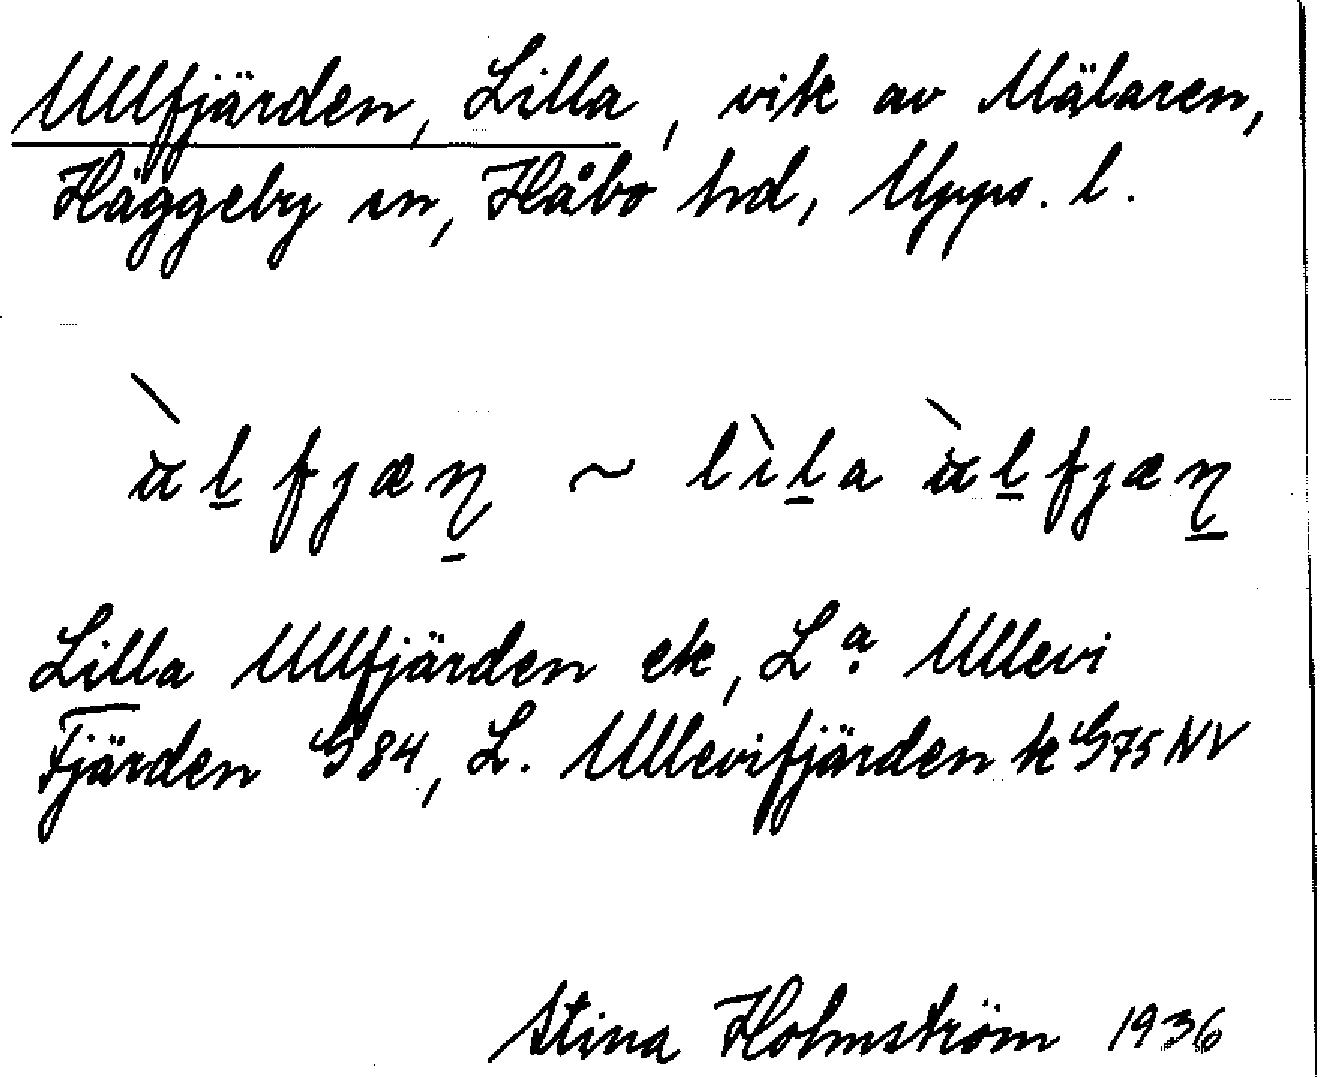 Ullfjärden, Lilla, vik av Mälaren,
Häggeby sn, Håbo hd, Upps. l.
lfjæɳ ~ lìla lfjæɳ
Lilla Ullfjärden ek, La Ullevi
Fjärden G84, L. Ullevifjärden k G75 NV
Stina Holmström 1936